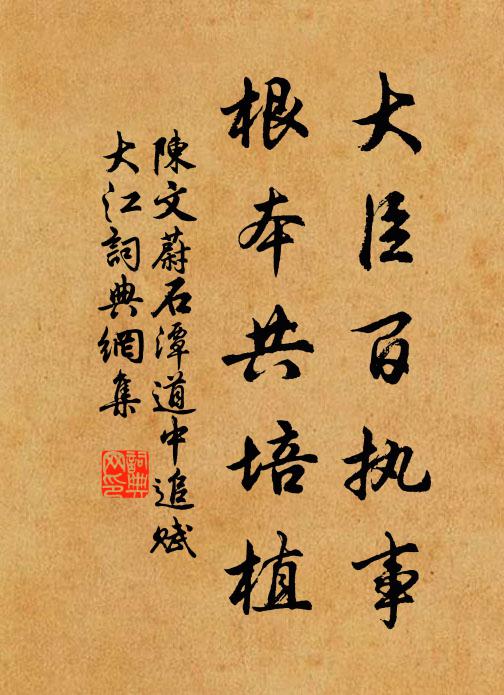 大臣百执事
根本共培植
陳文蔚石潭道中追赋
大江詞典網集
詞典网印